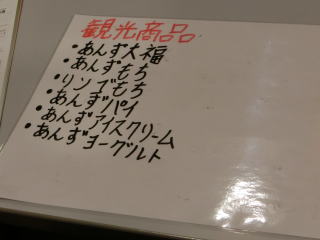 観光商品
・あんず大福
・あんずもち
・リンゴもち
・あんずパイ
・あんずアイスクリーム
・あんずヨーグルト